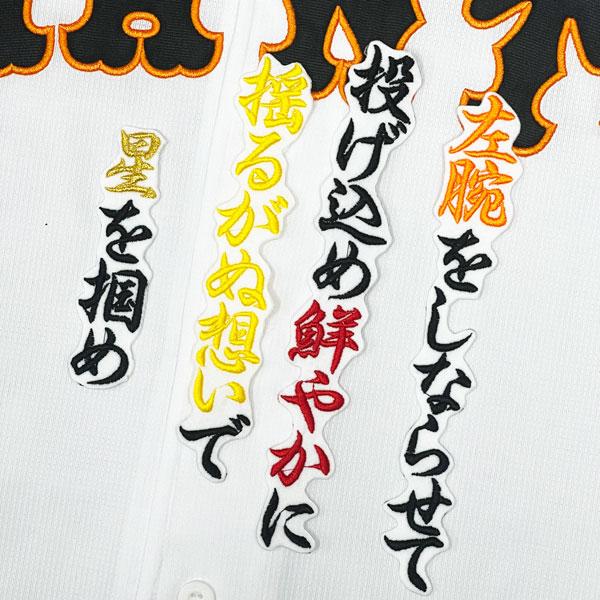 左腕をしならせて
投げ込め鮮やかに
揺るがぬ想いで
星を掴め